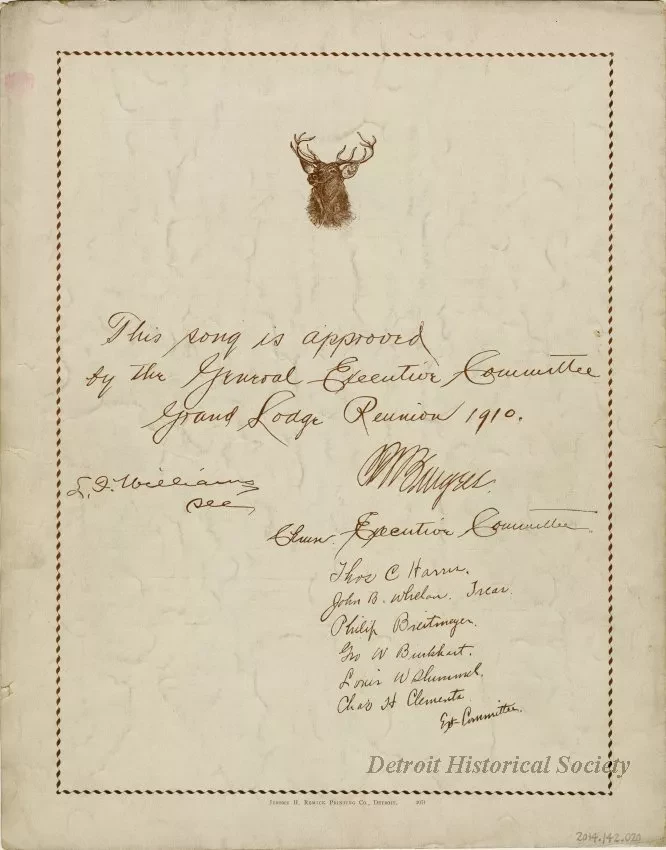 This song is approved
by the General Executive Committee
Grand Lodge Reunion 1910.
Williams
Sec
Chmn. Executive Committee
Thos C
John B. Whelan. Treas.
Philip Breitmeyer.
Geo W Burkhart.
Louis W
Chas H Clements
Ex Committee.
Detroit Historical Society
Jerome H. Remick Printing Co., Detroit.
2014.142.020